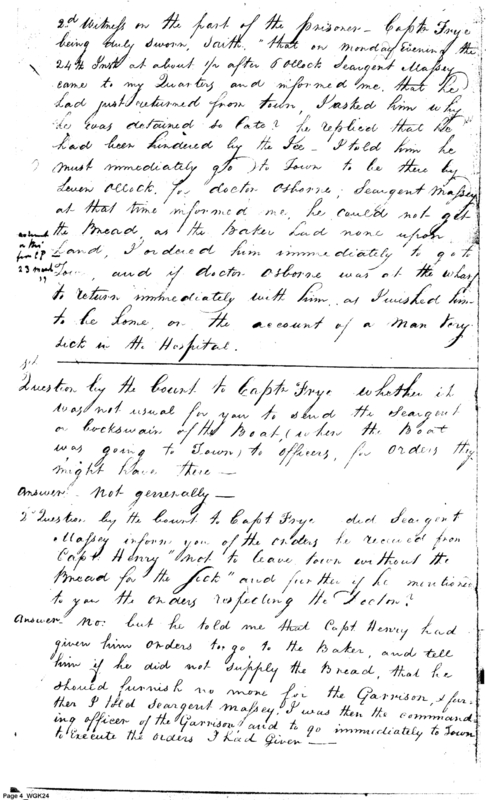 2d Witness on the part of the prisoner – Captn Frye
being duly sworn, Saith. "that on monday Evening the
24th Inst at about 1/2 after 5 Ollock Seargent Massey
came to my Quarters and informed me, that he
had just returned from town, I asked him why
he was detained so late? he replied that he
had been hindered by the Ice – I told him he
must immediately go to Town to be there by
Seven Ollock, for doctor Osborne; Seargent Massey
at that time informed me, he could not get
the Bread, as the Baker had none upon
hand, I ordered him immediately to go to
Town, and if doctor Osborne was at the wharf
to return immediately with him, as I wished him
to be home, on the account of a Man very
sick in the Hospital.
23 March
19
1st
Question by the Court to Captn Frye whether it
was not usual for you to send the Seargent
or Cockswain of the Boat, (when the Boat
was going to Town) to officers, for orders they
might have there –
Answer. Not generally –
2d Question by the Court to Capt Frye did Seargent
Massey inform you of the orders he received from
Capt. Henry "not to leave town without the
Bread for the Sick" and further if he mentioned
to you the orders respecting the Doctor?
Answer No: but he told me that Capt Henry had
given him orders to go to the Baker, and tell
him if he did not supply the Bread, that he
should furnish no more for the Garrison, & fur-
ther I told Seargent Massey, I was then the command
ing officer of the Garrison and to go immediately to Town
to Execute the orders I had Given –
Page 4_WGK24